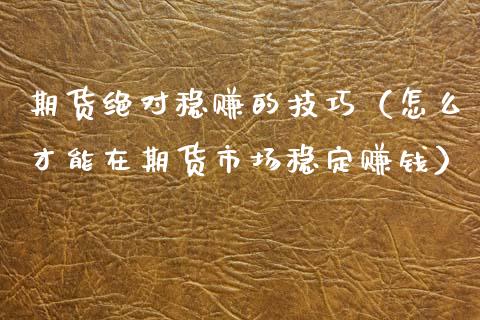 期货绝对稳赚的技巧（怎么
才能在期货市场稳定赚钱）